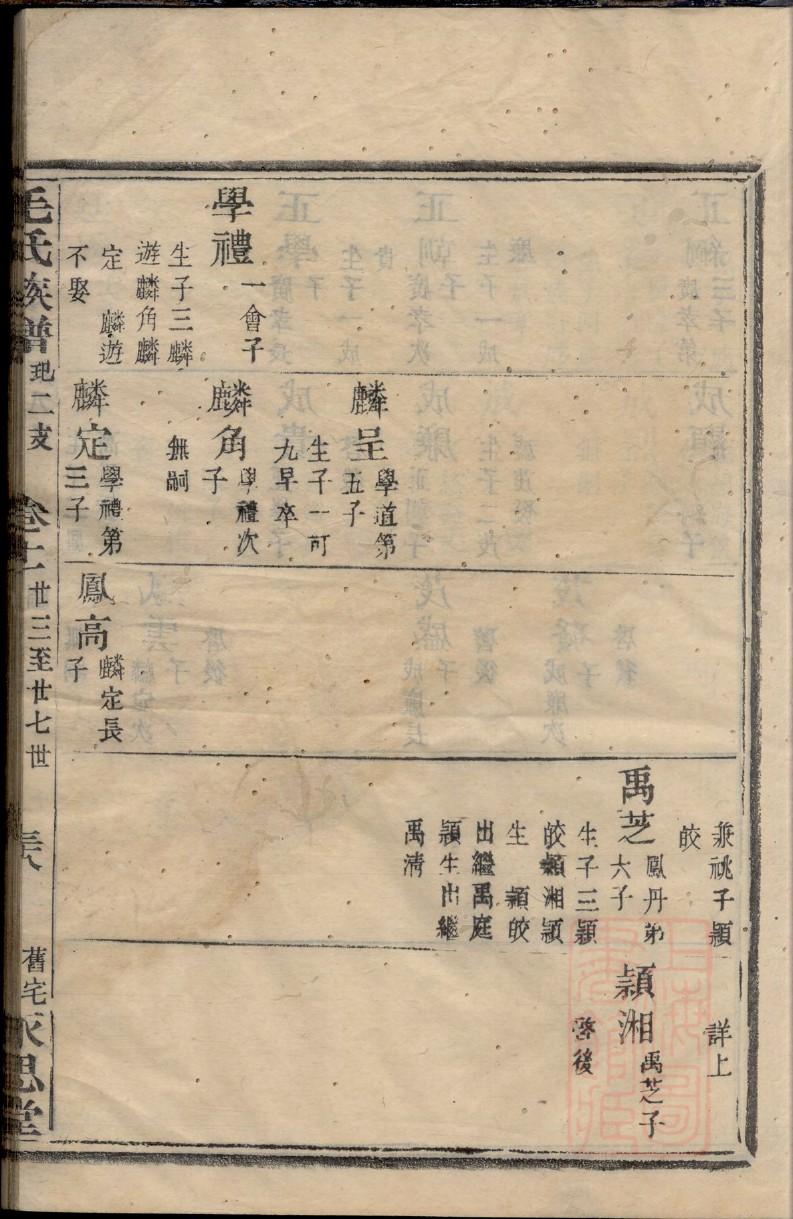 學禮
一會子
生子三麟
遊麟角麟
定　麟遊
不娶
麟呈
學道第
五子
生子一可
九早卒
麟角
學禮次
子
無嗣
麟定
學禮第
三子
鳳高
麟定長
子
兼祧子穎
皎
禹芝
鳳丹第
六子
生子三穎
皎穎湘穎
生　穎皎
出繼禹庭
穎生出繼
禹清
詳上
穎湘
禹芝子
啓後
毛氏族譜
二支
廿三至廿七世
舊宅
永思堂